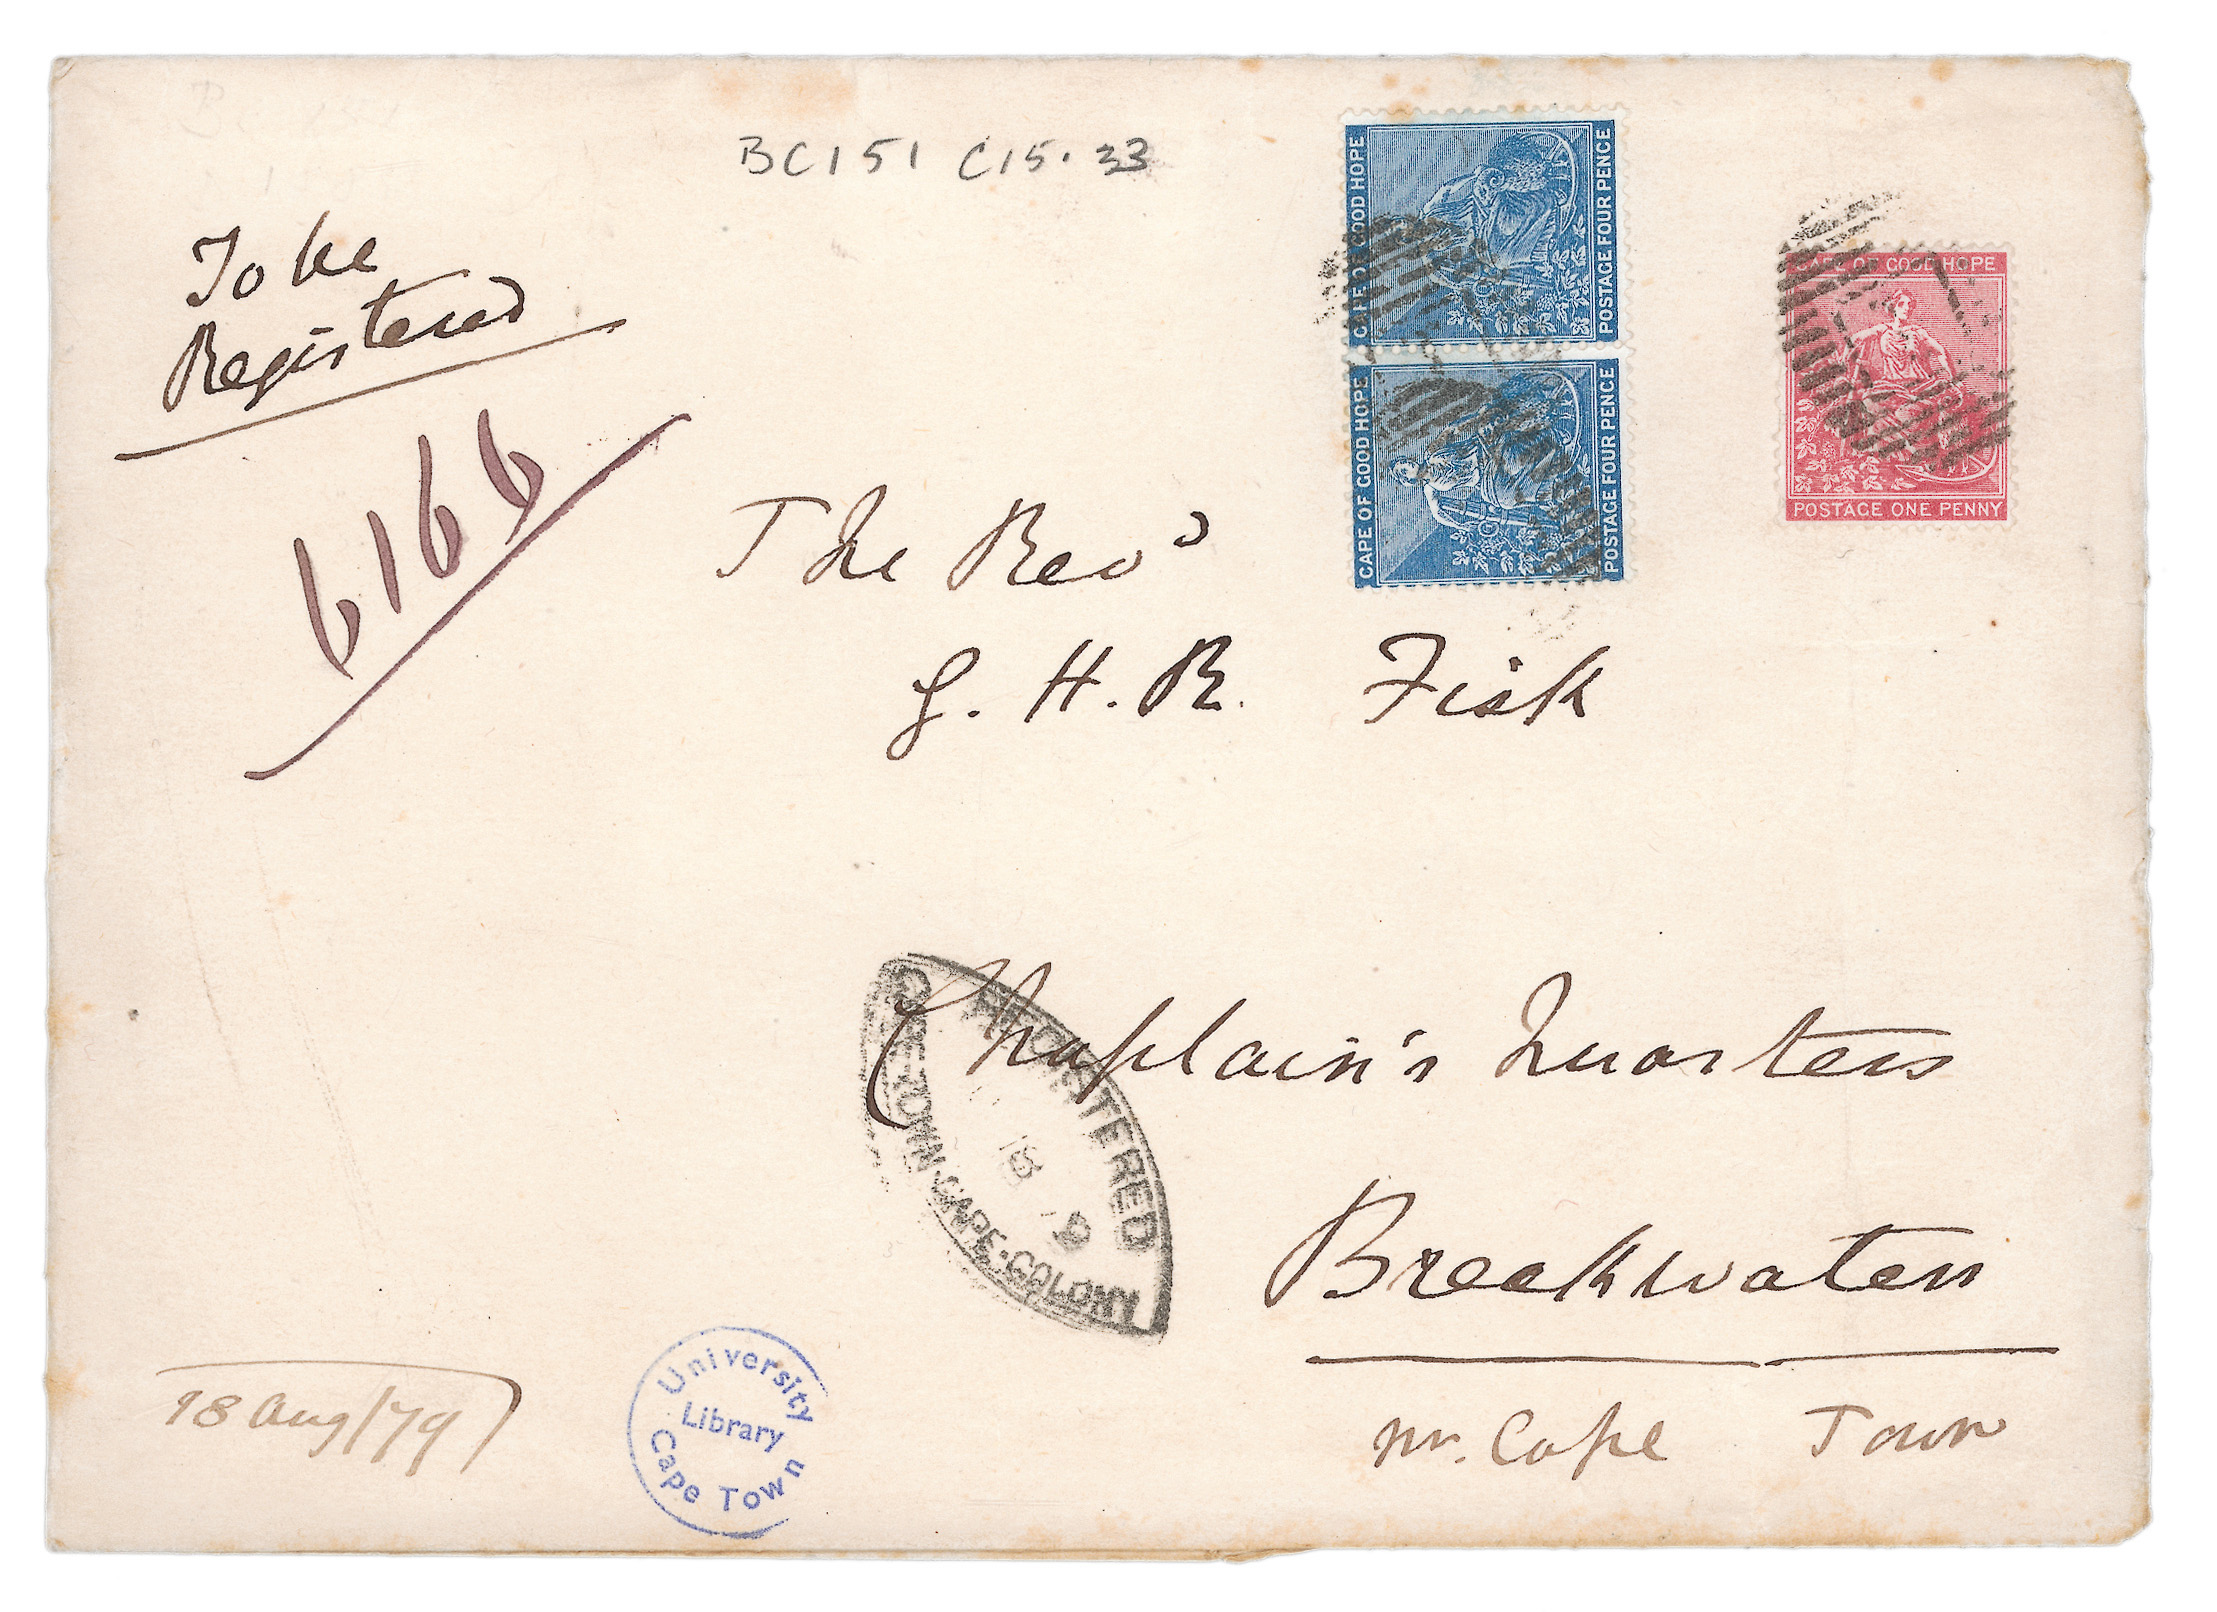 BC151 C15.33
To be
Registered
6166
CAPE OF GOOD HOPE
POSTAGE FOUR PENCE
CAPE OF GOOD HOPE
POSTAGE FOUR PENCE
CAPE OF GOOD HOPE
POSTAGE ONE PENNY
The Revd
G. H. R. Fisk
Chaplain's Quarters
Breakwater
nr. Cape Town
REGISTERED
TOWN·CAPE·COLONY
18 Aug/79
University
Library
Cape Town